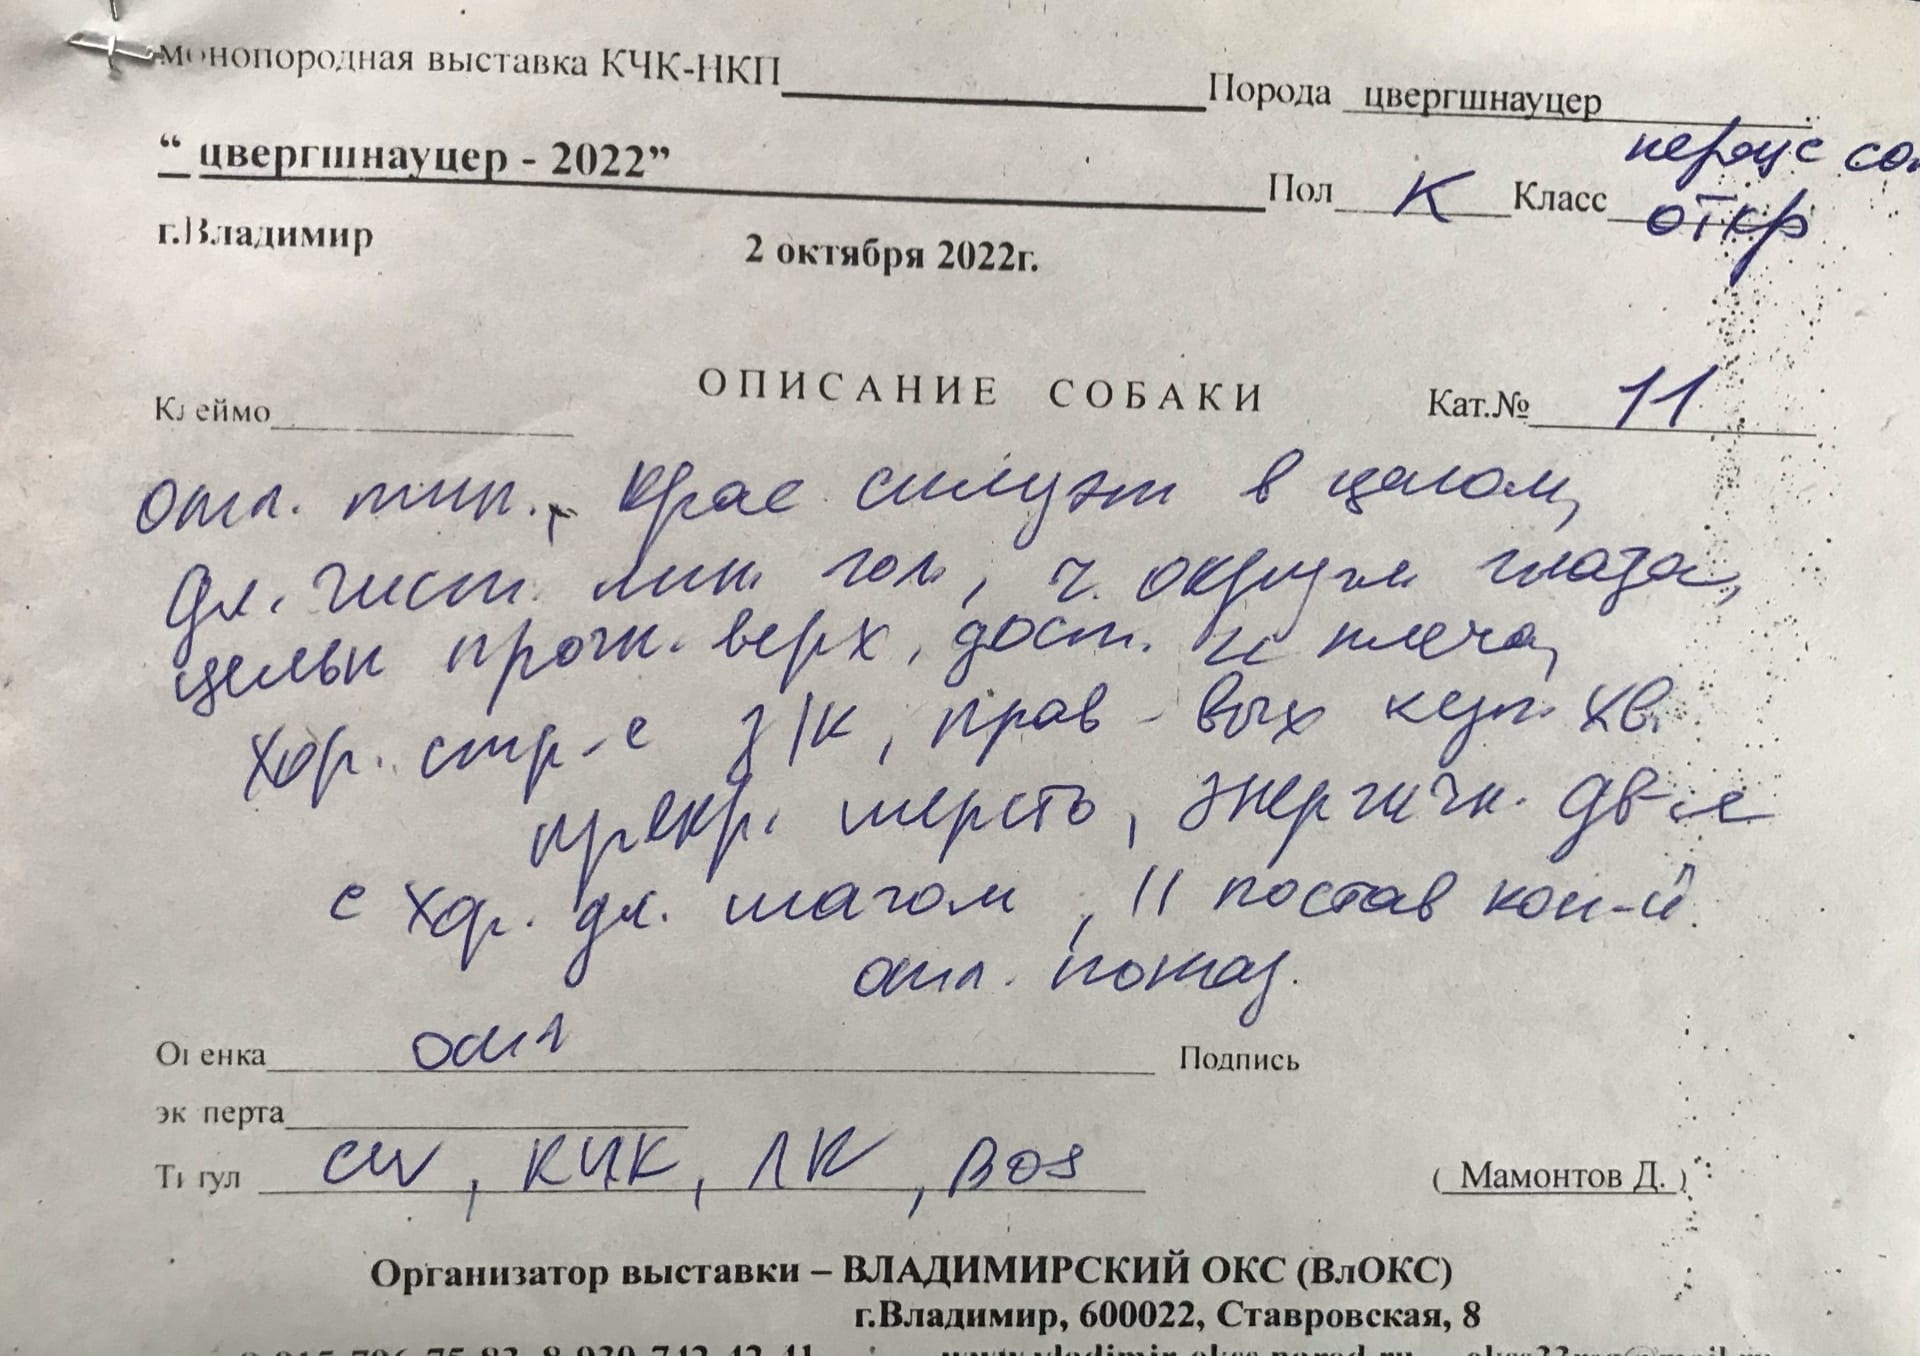 монопородная выставка КЧК-НКП Порода цвергшнауцер
перец с сол
“ цвергшнауцер - 2022” Пол К Класс откр
г.Владимир 2 октября 2022г.
ОПИСАНИЕ СОБАКИ
Клеймо Кат.№ 11
отл. тип., крас силуэт в целом,
дл. чист. лин. гол, ч. округл глаза,
цельн прочн. верх, дост. плеча,
хор. стр-е з/к, прав - вых куп. хв.
прекр. шерсть, энергичн. дв-е
с хор. дл. шагом, II постав кон-й
отл. показ.
Оценка отл Подпись
эксперта
Титул CW, КЧК, ЛК, BOS ( Мамонтов Д. )
Организатор выставки – ВЛАДИМИРСКИЙ ОКС (ВлОКС)
г.Владимир, 600022, Ставровская, 8